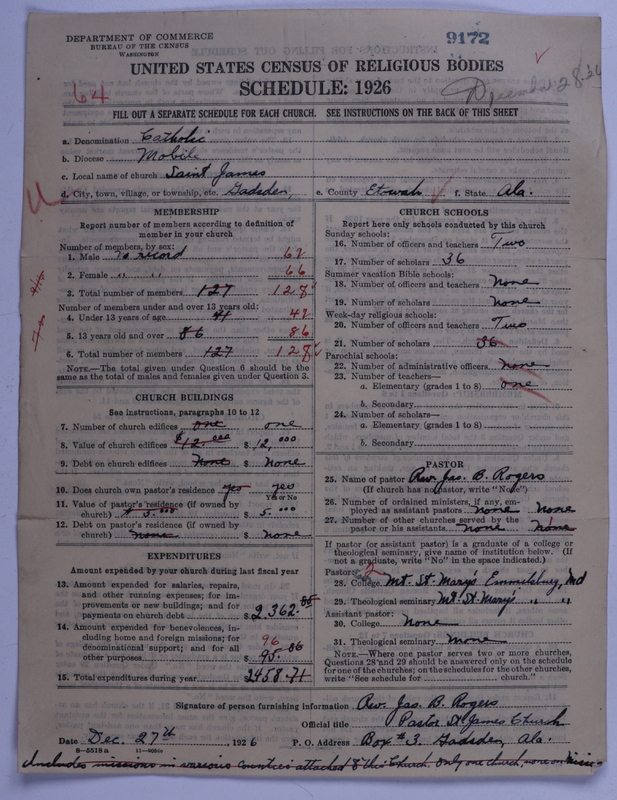 DEPARTMENT OF COMMERCE
BUREAU OF THE CENSUS
WASHINGTON
9172
UNITED STATES CENSUS OF RELIGIOUS BODIES
SCHEDULE: 1926
64
FILL OUT A SEPARATE SCHEDULE FOR EACH CHURCH. SEE INSTRUCTIONS ON THE BACK OF THIS SHEET
a. Denomination Catholic
b. Diocese Mobile
c. Local name of church Saint James
d. City, town, village, or township, etc. Gadsden, e. County Etowah f. State Ala.
MEMBERSHIP
Report number of members according to definition of
member in your church
Number of members, by sex:
1. Male No record
2. Female " " 66
3. Total number of members 127 128
Number of members under and over 13 years old:
4. Under 13 years of age 41 42
5. 13 years old and over 86 86
6. Total number of members 127 128
NOTE.—The total given under Question 6 should be the
same as the total of males and females given under Question 3.
CHURCH BUILDINGS
See instructions, paragraphs 10 to 12
7. Number of church edifices one one
8. Value of church edifices $12,000 $ 12,000
9. Debt on church edifices None $ None
10. Does church own pastor's residence yes yes
Yes or No
11. Value of pastor's residence (if owned by
church) $ 5.000 $ 5.000
12. Debt on pastor's residence (if owned by
church) None $ None
EXPENDITURES
Amount expended by your church during last fiscal year
13. Amount expended for salaries, repairs,
and other running expenses; for im-
provements or new buildings; and for
payments on church debt $ 2,362.85
14. Amount expended for benevolences, in-
cluding home and foreign missions; for
denominational support; and for all
other purposes $ 95.86
96
15. Total expenditures during year 2458.71
CHURCH SCHOOLS
Report here only schools conducted by this church
Sunday schools:
16. Number of officers and teachers Two
17. Number of scholars 36
Summer vacation Bible schools:
18. Number of officers and teachers None
19. Number of scholars None
Week-day religious schools:
20. Number of officers and teachers Two
21. Number of scholars 36
Parochial schools:
22. Number of administrative officers None
23. Number of teachers—
a. Elementary (grades 1 to 8) one
b. Secondary
24. Number of scholars—
a. Elementary (grades 1 to 8)
b. Secondary
PASTOR
25. Name of pastor Rev. Jas. B. Rogers
(If church has no pastor, write "No")
26. Number of ordained ministers, if any, em-
ployed as assistant pastors None None
27. Number of other churches served by the
pastor or his assistants None None
If pastor (or assistant) is a graduate of a college or
theological seminary, give name of institution below. (If
not a graduate, write "No" in the space indicated.)
Pastor:
28. College Mt. St. Mary's Emmitsburg, Md
29. Theological seminary Mt. St. Mary's " "
Assistant pastor:
30. College None
31. Theological seminary None
NOTE.—Where one pastor serves two or more churches,
Questions 28 and 29 should be answered only on the schedule
for one of the churches; on the schedules for the other churches,
write "See schedule for church."
Signature of person furnishing information Rev. Jas. B. Rogers
Official title Pastor St James Church
Date Dec. 27th, 1926 P. O. Address Box #3. Gadsden, Ala.
8—5518 a
Includes missions in various counties attached to this Church. Only one church, none on missions